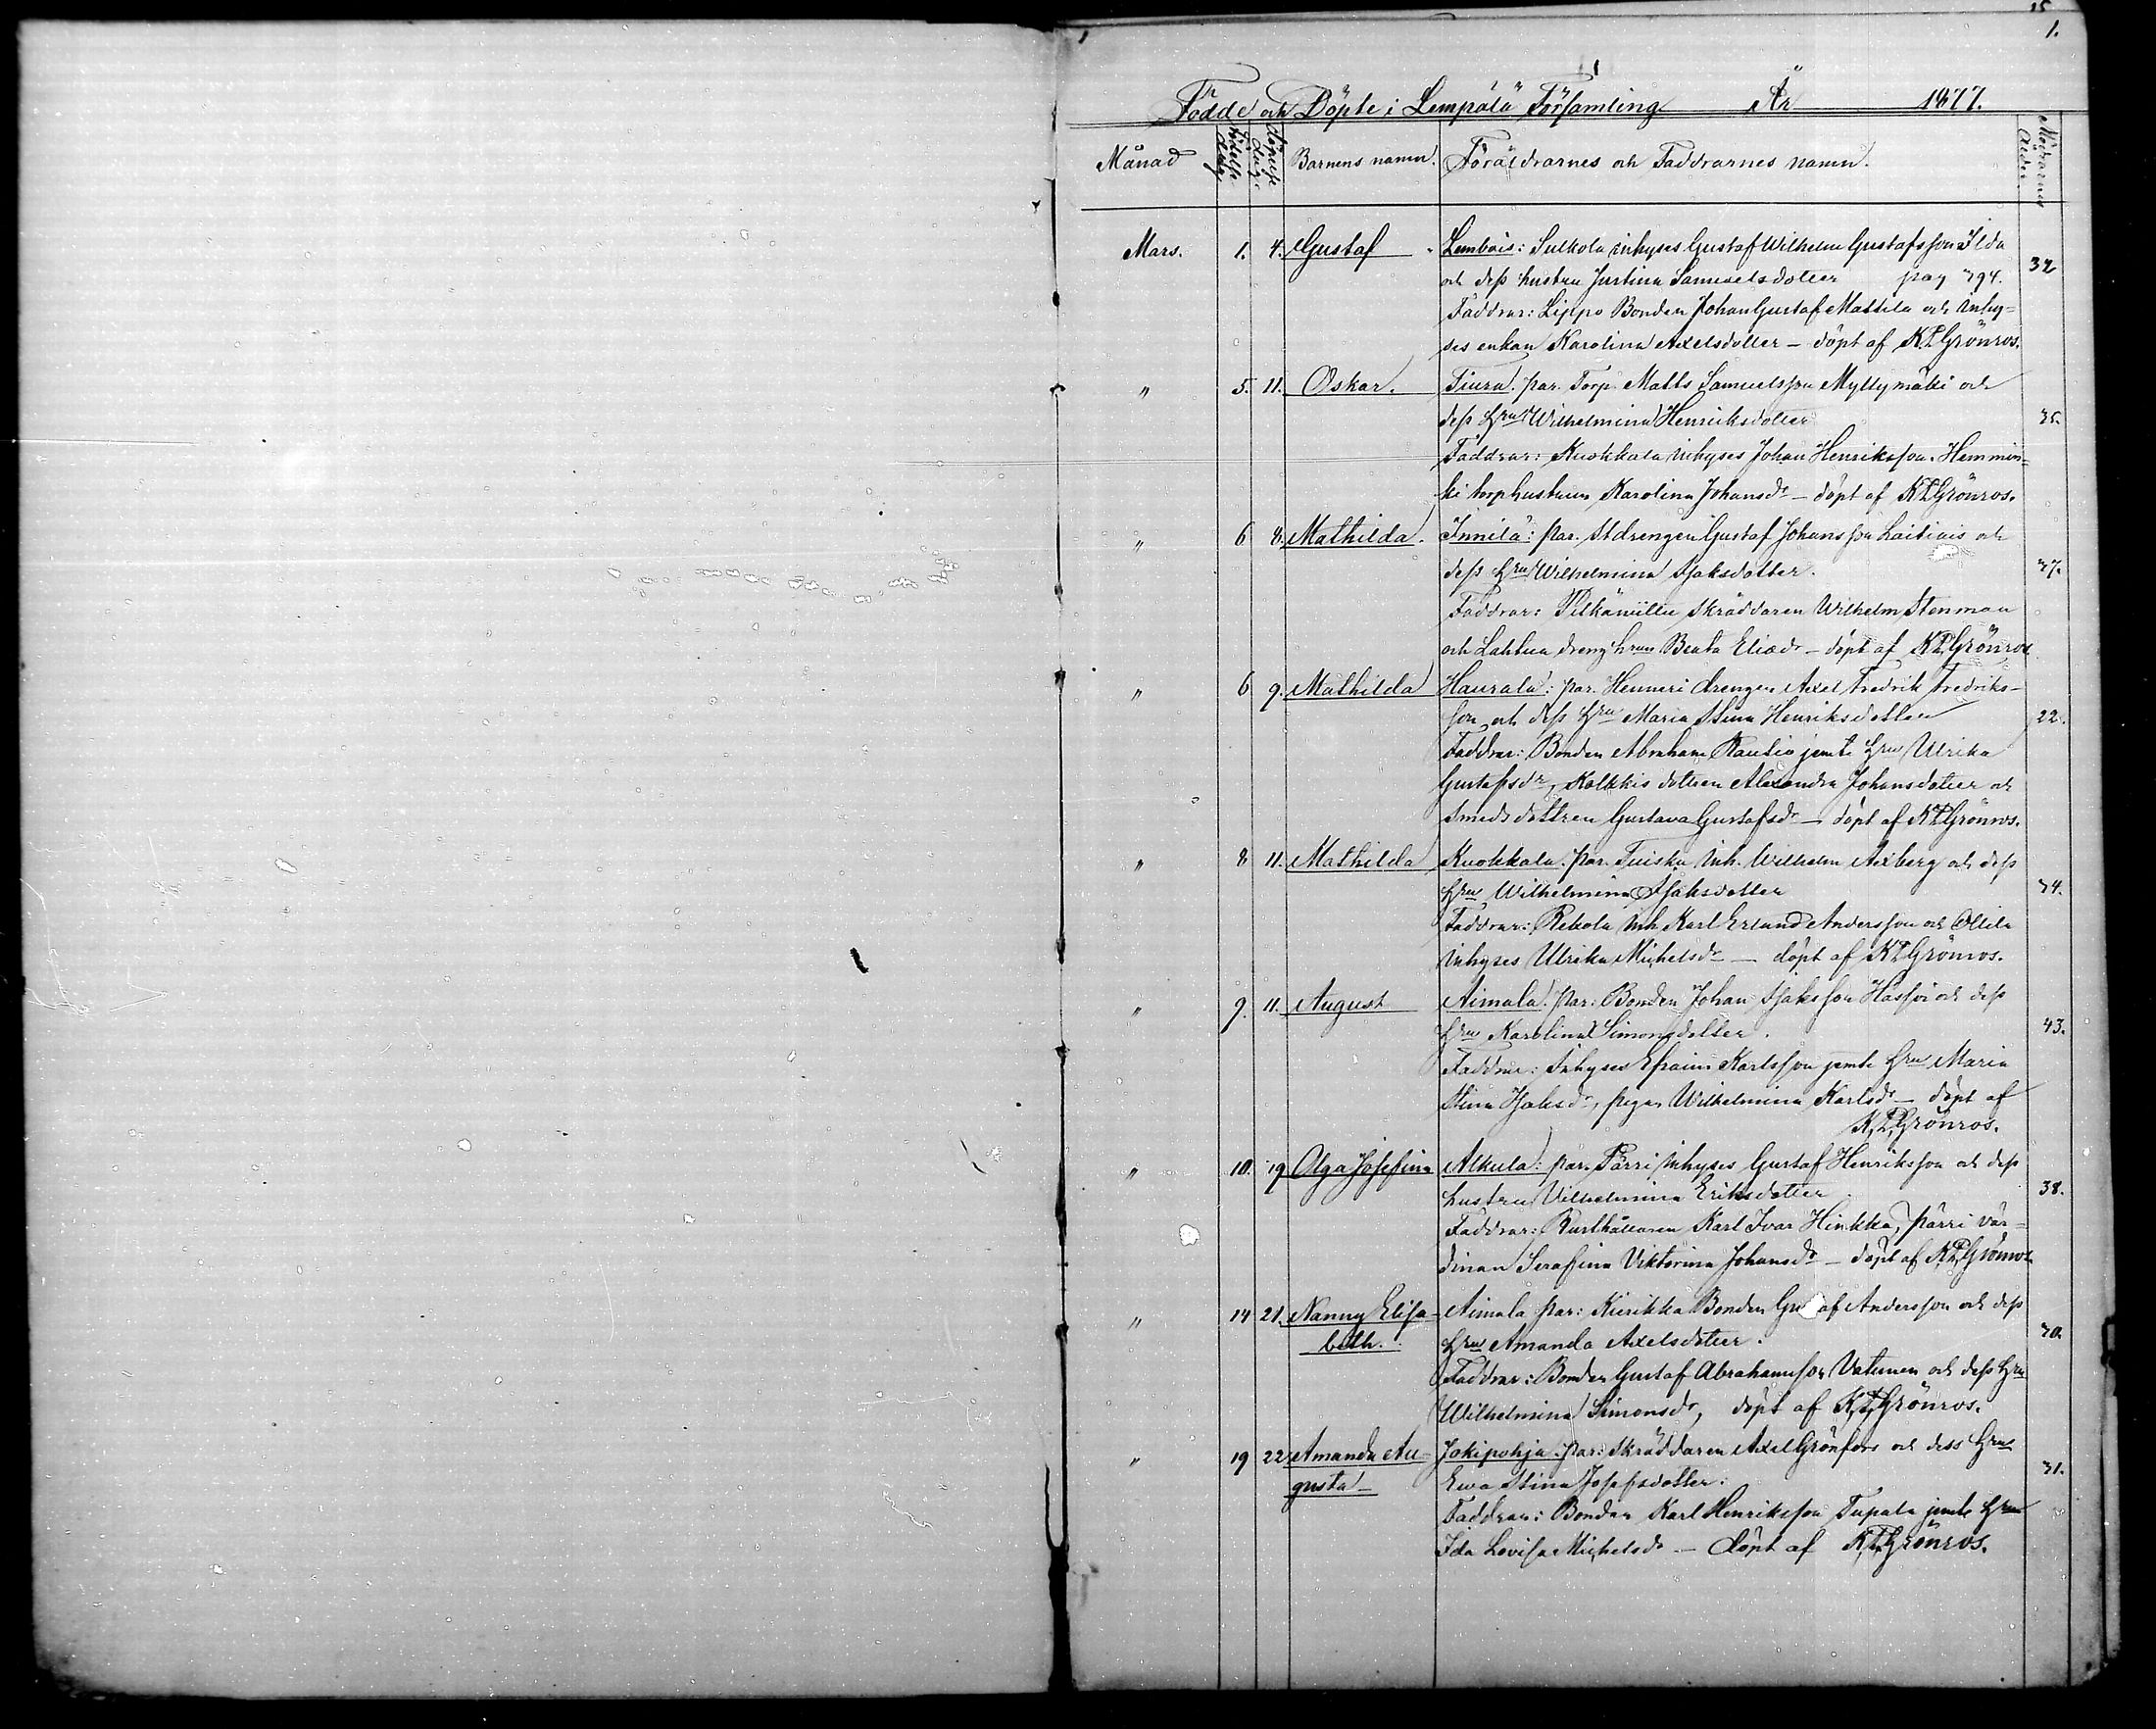 15
1.
Födde och Döpte i Lempälä Församling År 1877.
Månad födelse dag döpelse dag Barnens namn. Föräldrarnes och Faddrarnes namn. Mödrarnes Ålder
Mars. 1. 4. Gustaf Lembois: Sulkola inhyses Gustaf Wilhelm Gustafsson
och dess hustru Justina Samuelsdotter pag 794. 32
Faddrar: Lippo Bonden Johan Gustaf Mattila och inhy=
ses enkan Karolina Axelsdotter – döpt af K.P. Grönros.
" 5. 11. Oskar. par. Torp. Matts Samuelsson Myllymäki och
dess hru Wilhelmina Henriksdotter 35.
Faddrar: Kuokkala inhyses Johan Henriksson. Hemmin=
ki torp hustrun Karolina Johansdr – döpt af K.P. Grönros.
" 6 8. Mathilda. Innilä: par. Stdrengen Gustaf Johansson och
dess hru Wilhelmina Isaksdotter. 37.
Faddrar: skräddaren Wilhelm Stenman
och Lahtua dreng hrun Beata Eliædr – döpt af K.P. Grönros
" 6 9. Mathilda Haurala: par. Henneri drengen Axel Fredrik Fredriks=
son och dess hru Maria Stina Henriksdotter 22.
Faddrar: Bonden Abraham Rautio jemte hru Ulrika
Gustafsdr, Kolkkis dottren Alexandra Johansdotter och
Smeds dottren Gustava Gustafsdr – döpt af K.P. Grönros.
" 8 11. Mathilda Kuokkala. par. Tuisku Inh. Wilhelm Axberg och dess
hru Wilhelmina Isaksdotter 34.
Faddrar: Rekola Inh. Karl Erland Andersson och Ollila
inhyses Ulrika Michelsdr – döpt af K.P. Grönros.
" 9. 11. August Aimala. par: Bonden Johan Isaksson Hassi och dess
hru Karolina Simonsdotter. 43.
Faddrar: Inhyses Efraim Karlsson jemte hru Maria
Stina Isaksdr, pigan Wilhelmina Karlsdr – döpt af
K.P. Grönros.
" 10. 19 Olga Josefina Alkula: par. Pärri inhyses Gustaf Henriksson och dess
hustru Wilhelmina Eriksdotter. 38.
Faddrar: Rusthållaren Karl Ivar Hinkka, Pärri vär=
dinnan Serafina Viktorina Johansdr – döpt af K.P. Grönros
" 14 21. Nanny Elisa= Aimala par: Kierikka Bonden Gustaf Andersson och dess
beth. hru Amanda Axelsdotter. 30.
Faddrar: Bonden Gustaf Abrahamsson Vatunen och dess hru
Wilhelmina Simonsdr, döpt af K.P. Grönros.
" 19 22 Amanda Au= Jokipohja: par: Skräddaren Axel Grönfors och dess hru
gusta – Ewa Stina Josefsdotter. 31.
Faddrar: Bonden Karl Henriksson Tupala jemte hru
Ida Lovisa Michelsdr – döpt af K.P. Grönros.